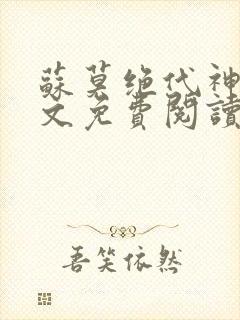 蘇莫绝代神
文免費閱讀
吾笑依然